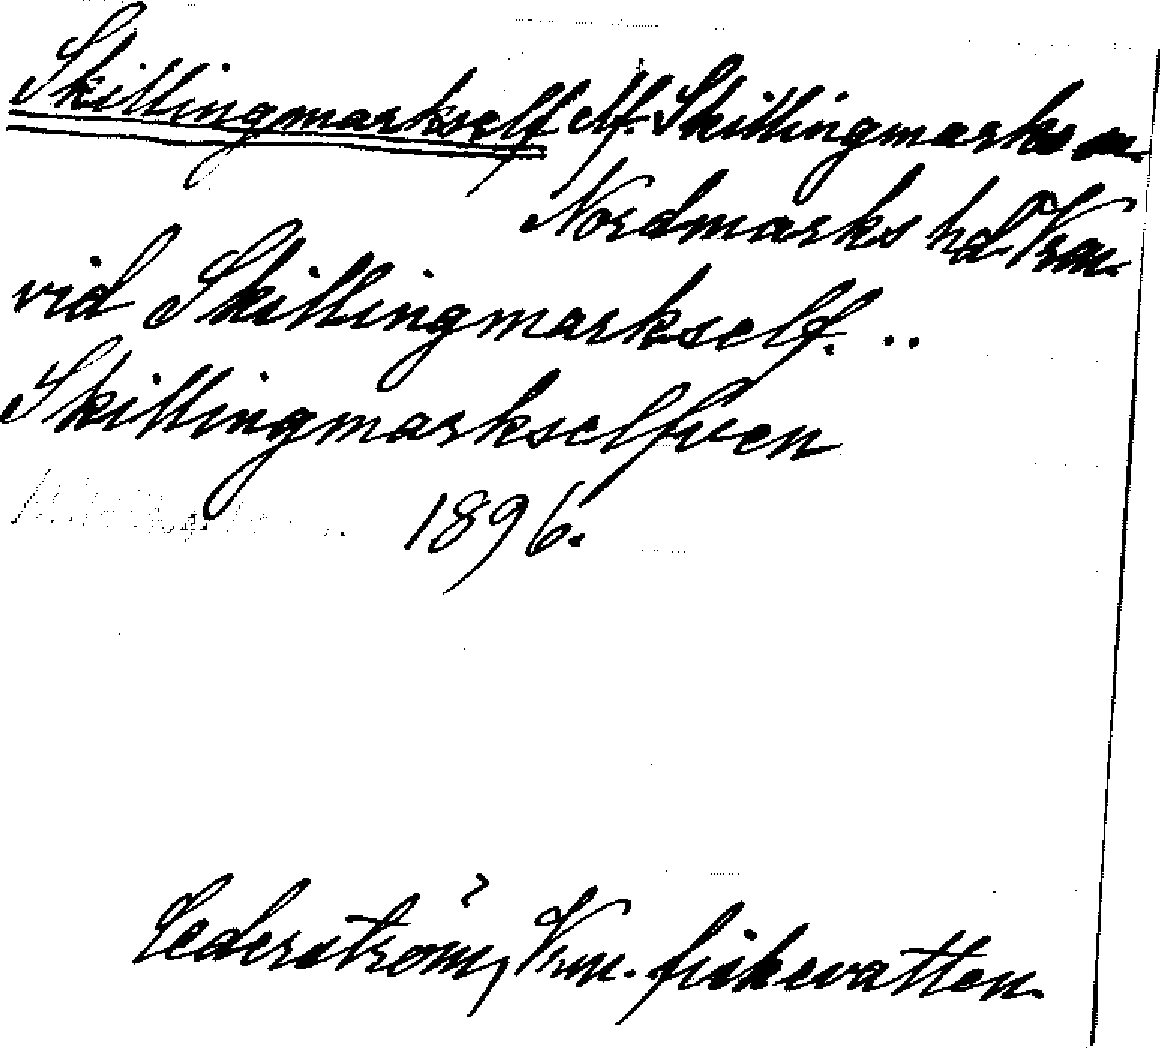 Skillingmarkself elf. Skillingmarks sn.
Nordmarks hd. Vrm.
vid Skillingmarkself. ..
Skillingmarkselfven
1896.
Cederström, Vrm. fiskevatten.